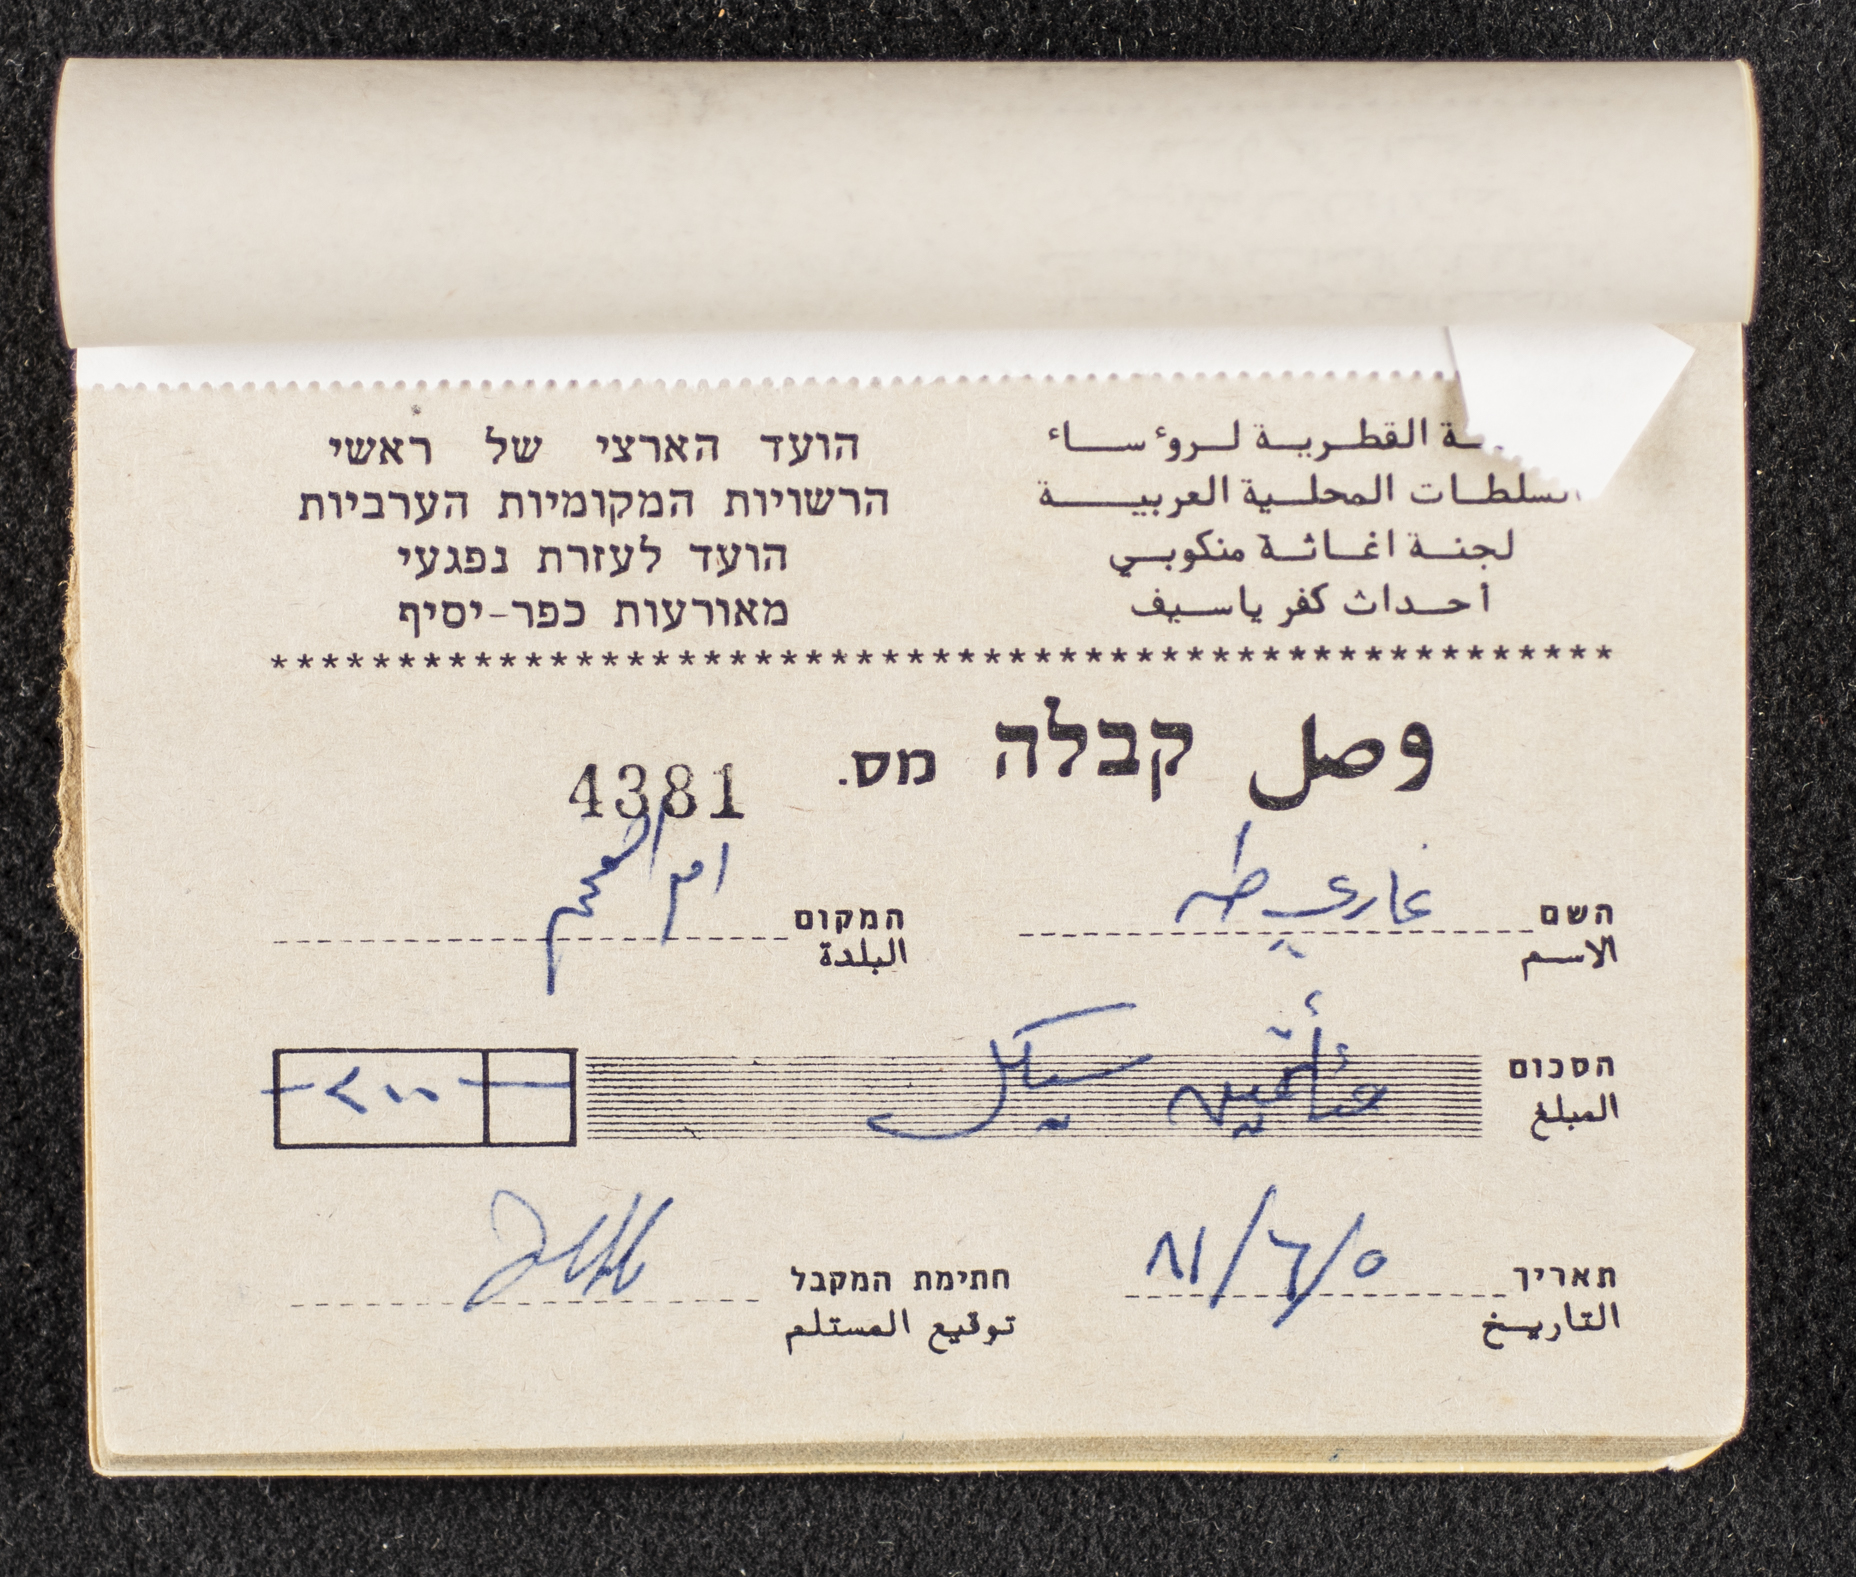 ـة القطرية لروءساء הועד הארצי של ראשי
السلطات المحلية العربية הרשויות המקומיות הערביות
لجنة اغاثة منكوبي הועד לעזרת נפגעי
أحداث كفر ياسيف מאורעות כפר-יסיף
*****************************************************
وصل קבלה מס. 4381
השם غازي طه המקום ام الفحم
الاسم البلدة
הסכום مئأتين شيكل -٢٠٠-
المبلغ
תאריך ٥/٦/٨١ חתימת המקבל
التاريخ توقيع المستلم